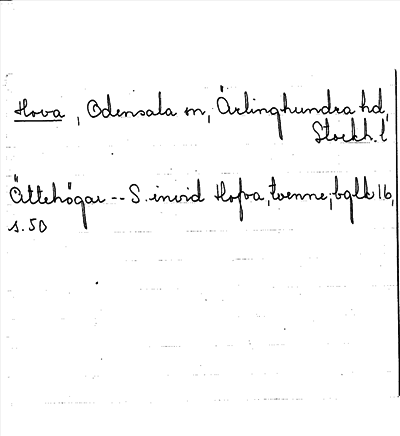 Hova, Odensala sn, Ärlinghundra hd,
Stockh. l
Ättehögar -- S. invid Hofva, tvenne, bglb 16,
s. 50